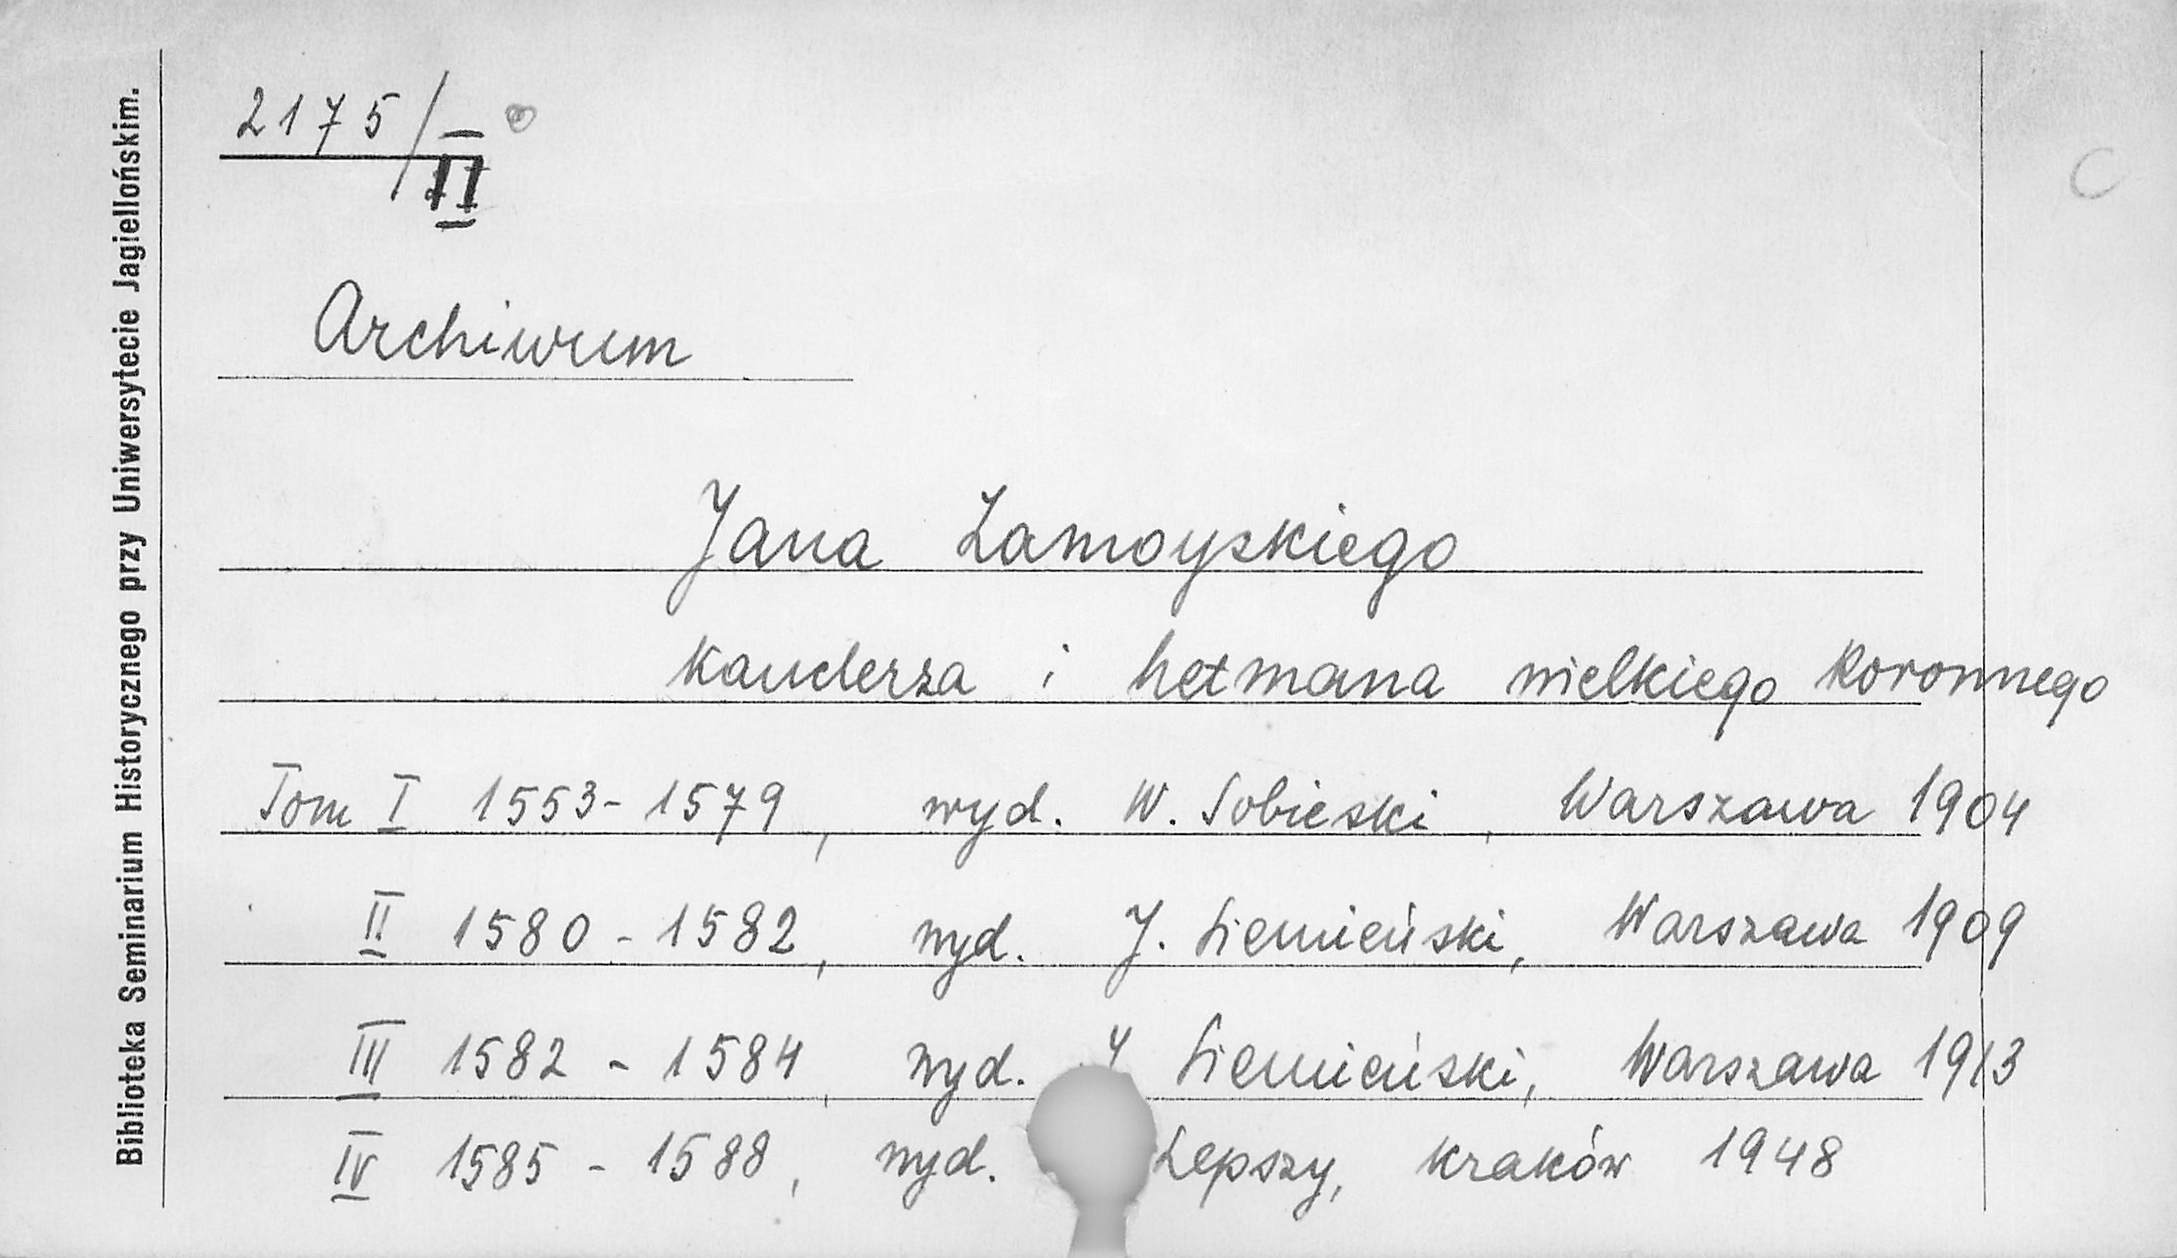 Biblioteka Seminarium Historycznego przy Uniwersytecie Jagiellońskim.
2175/II
C
Archiwum
Jana Zamoyskiego
kanclerza i hetmana wielkiego koronnego
Tom I 1553-1579, wyd. W. Sobieski, Warszawa 1904
II 1580-1582, wyd. J. Siemieński, Warszawa 1909
III 1582-1584, wyd. J Siemieński, Warszawa 1913
IV 1585-1588, wyd. Lepszy, Kraków 1948